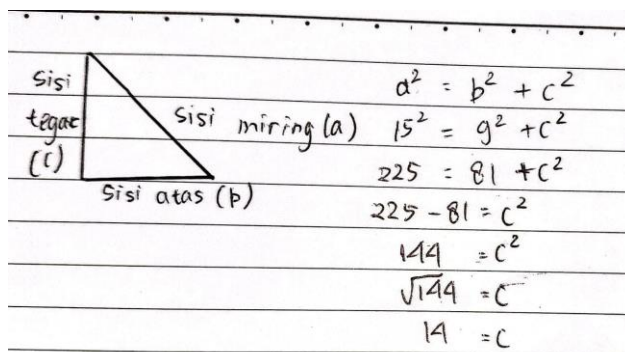 Sisi
tegak
(c)
Sisi miring (a)
Sisi atas (b)
a² = b² + c²
15² = 9² + c²
225 = 81 + c²
225 - 81 = c²
144 = c²
√144 = c
14 = c